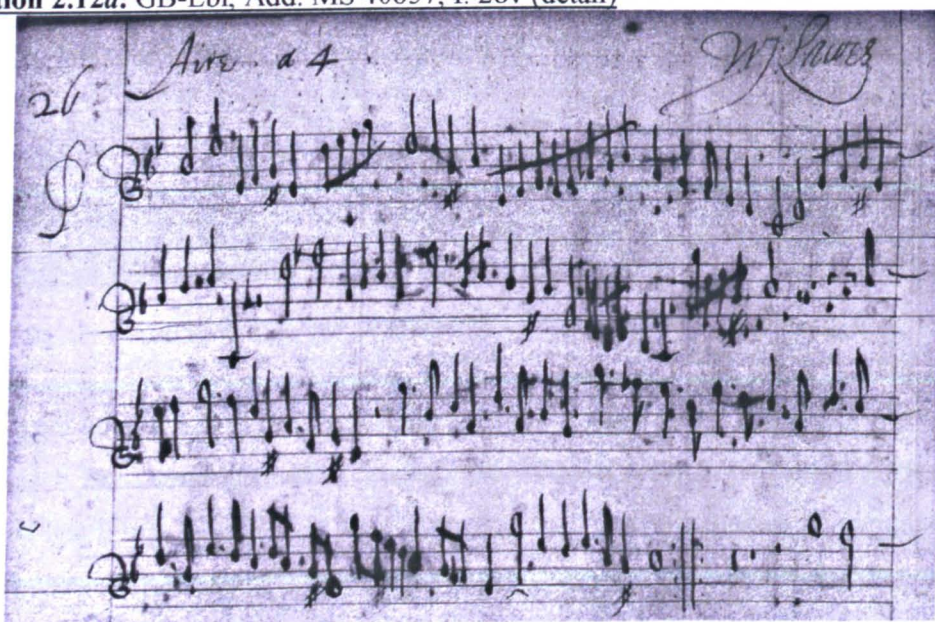 tion 2.12a: GB-Lbl, Add. MS 40657, f. 28v (detail)
Aire a 4. Wj: Lawes
26